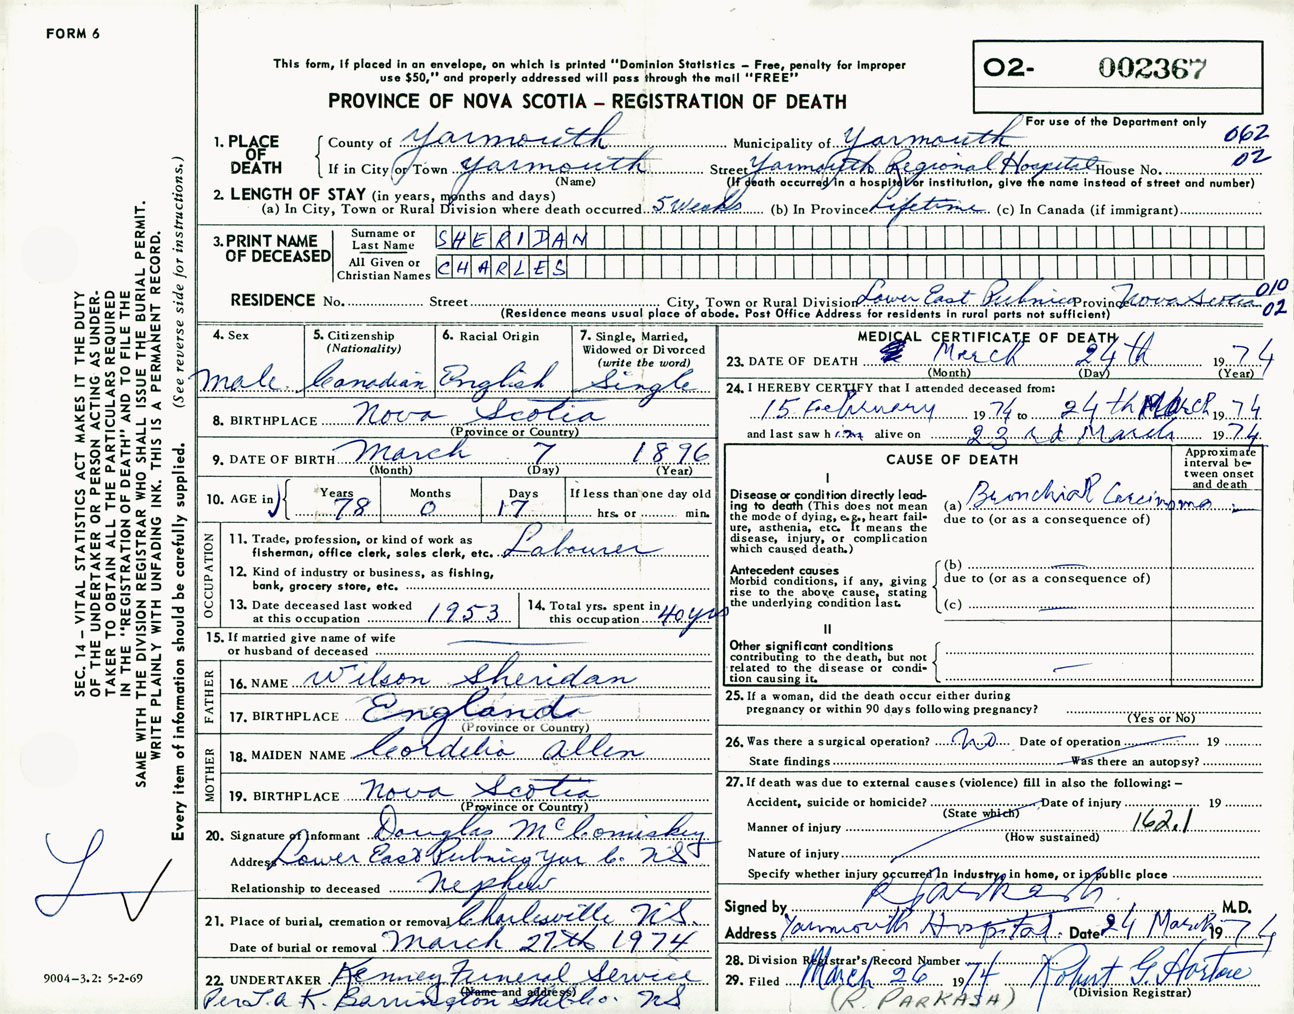 FORM 6
This form, if placed in an envelope, on which is printed "Dominion Statistics – Free, penalty for improper
use $50," and properly addressed will pass through the mail "FREE"
PROVINCE OF NOVA SCOTIA – REGISTRATION OF DEATH
02- 002367
For use of the Department only
062
02
1. PLACE OF DEATH
County of Yarmouth Municipality of Yarmouth
If in City or Town Yarmouth Street Yarmouth Regional Hospital House No.
(Name) (If death occurred in a hospital or institution, give the name instead of street and number)
2. LENGTH OF STAY (in years, months and days)
(a) In City, Town or Rural Division where death occurred 5 Weeks (b) In Province Lifetime (c) In Canada (if immigrant)
3. PRINT NAME OF DECEASED
Surname or Last Name SHERIDAN
All Given or Christian Names CHARLES
RESIDENCE No. Street City, Town or Rural Division Lower East Pubnico Province Nova Scotia 010
02
(Residence means usual place of abode. Post Office Address for residents in rural parts not sufficient)
4. Sex Male
5. Citizenship (Nationality) Canadian
6. Racial Origin English
7. Single, Married, Widowed or Divorced (write the word) Single
8. BIRTHPLACE Nova Scotia
(Province or Country)
9. DATE OF BIRTH March 7 1896
(Month) (Day) (Year)
10. AGE in Years 78 Months 0 Days 17 If less than one day old
hrs. or min.
OCCUPATION
11. Trade, profession, or kind of work as
fisherman, office clerk, sales clerk, etc. Labourer
12. Kind of industry or business, as fishing,
bank, grocery store, etc.
13. Date deceased last worked
at this occupation 1953
14. Total yrs. spent in
this occupation 40 yrs
15. If married give name of wife
or husband of deceased
FATHER
16. NAME Wilson Sheridan
17. BIRTHPLACE England
(Province or Country)
MOTHER
18. MAIDEN NAME Cordelia Allen
19. BIRTHPLACE Nova Scotia
(Province or Country)
20. Signature of Informant Douglas McComiskey
Address Lower East Pubnico Yar Co. NS
Relationship to deceased Nephew
21. Place of burial, cremation or removal Charlesville N.S.
Date of burial or removal March 27th 1974
22. UNDERTAKER Kenney Funeral Service
(Name and address)
Per Barrington Shel Co. NS
MEDICAL CERTIFICATE OF DEATH
23. DATE OF DEATH March 24th 1974
(Month) (Day) (Year)
24. I HEREBY CERTIFY that I attended deceased from:
15 February 1974 to 24th March 1974
and last saw him alive on 23rd March 1974
CAUSE OF DEATH
Approximate interval between onset and death
I
Disease or condition directly lead-
ing to death (This does not mean
the mode of dying, e.g., heart fail-
ure, asthenia, etc. It means the
disease, injury, or complication
which caused death.)
(a) Bronchial Carcinoma
due to (or as a consequence of)
Antecedent causes
Morbid conditions, if any, giving
rise to the above cause, stating
the underlying condition last.
(b)
due to (or as a consequence of)
(c)
II
Other significant conditions
contributing to the death, but not
related to the disease or condi-
tion causing it.
25. If a woman, did the death occur either during
pregnancy or within 90 days following pregnancy?
(Yes or No)
26. Was there a surgical operation? No Date of operation 19
State findings Was there an autopsy?
27. If death was due to external causes (violence) fill in also the following: –
Accident, suicide or homicide? Date of injury 19
(State which)
Manner of injury 162.1
(How sustained)
Nature of injury
Specify whether injury occurred in Industry, in home, or in public place
Signed by R Parkash M.D.
Address Yarmouth Hospital Date 24 March 1974
28. Division Registrar's Record Number
29. Filed March 26 1974 Robert G.
(Division Registrar)
(R. PARKASH)
SEC. 14 – VITAL STATISTICS ACT MAKES IT THE DUTY
OF THE UNDERTAKER OR PERSON ACTING AS UNDER-
TAKER TO OBTAIN ALL THE PARTICULARS REQUIRED
IN THE "REGISTRATION OF DEATH" AND TO FILE THE
SAME WITH THE DIVISION REGISTRAR WHO SHALL ISSUE THE BURIAL PERMIT.
WRITE PLAINLY WITH UNFADING INK. THIS IS A PERMANENT RECORD.
Every item of information should be carefully supplied. (See reverse side for instructions.)
9004–3.2: 5-2-69